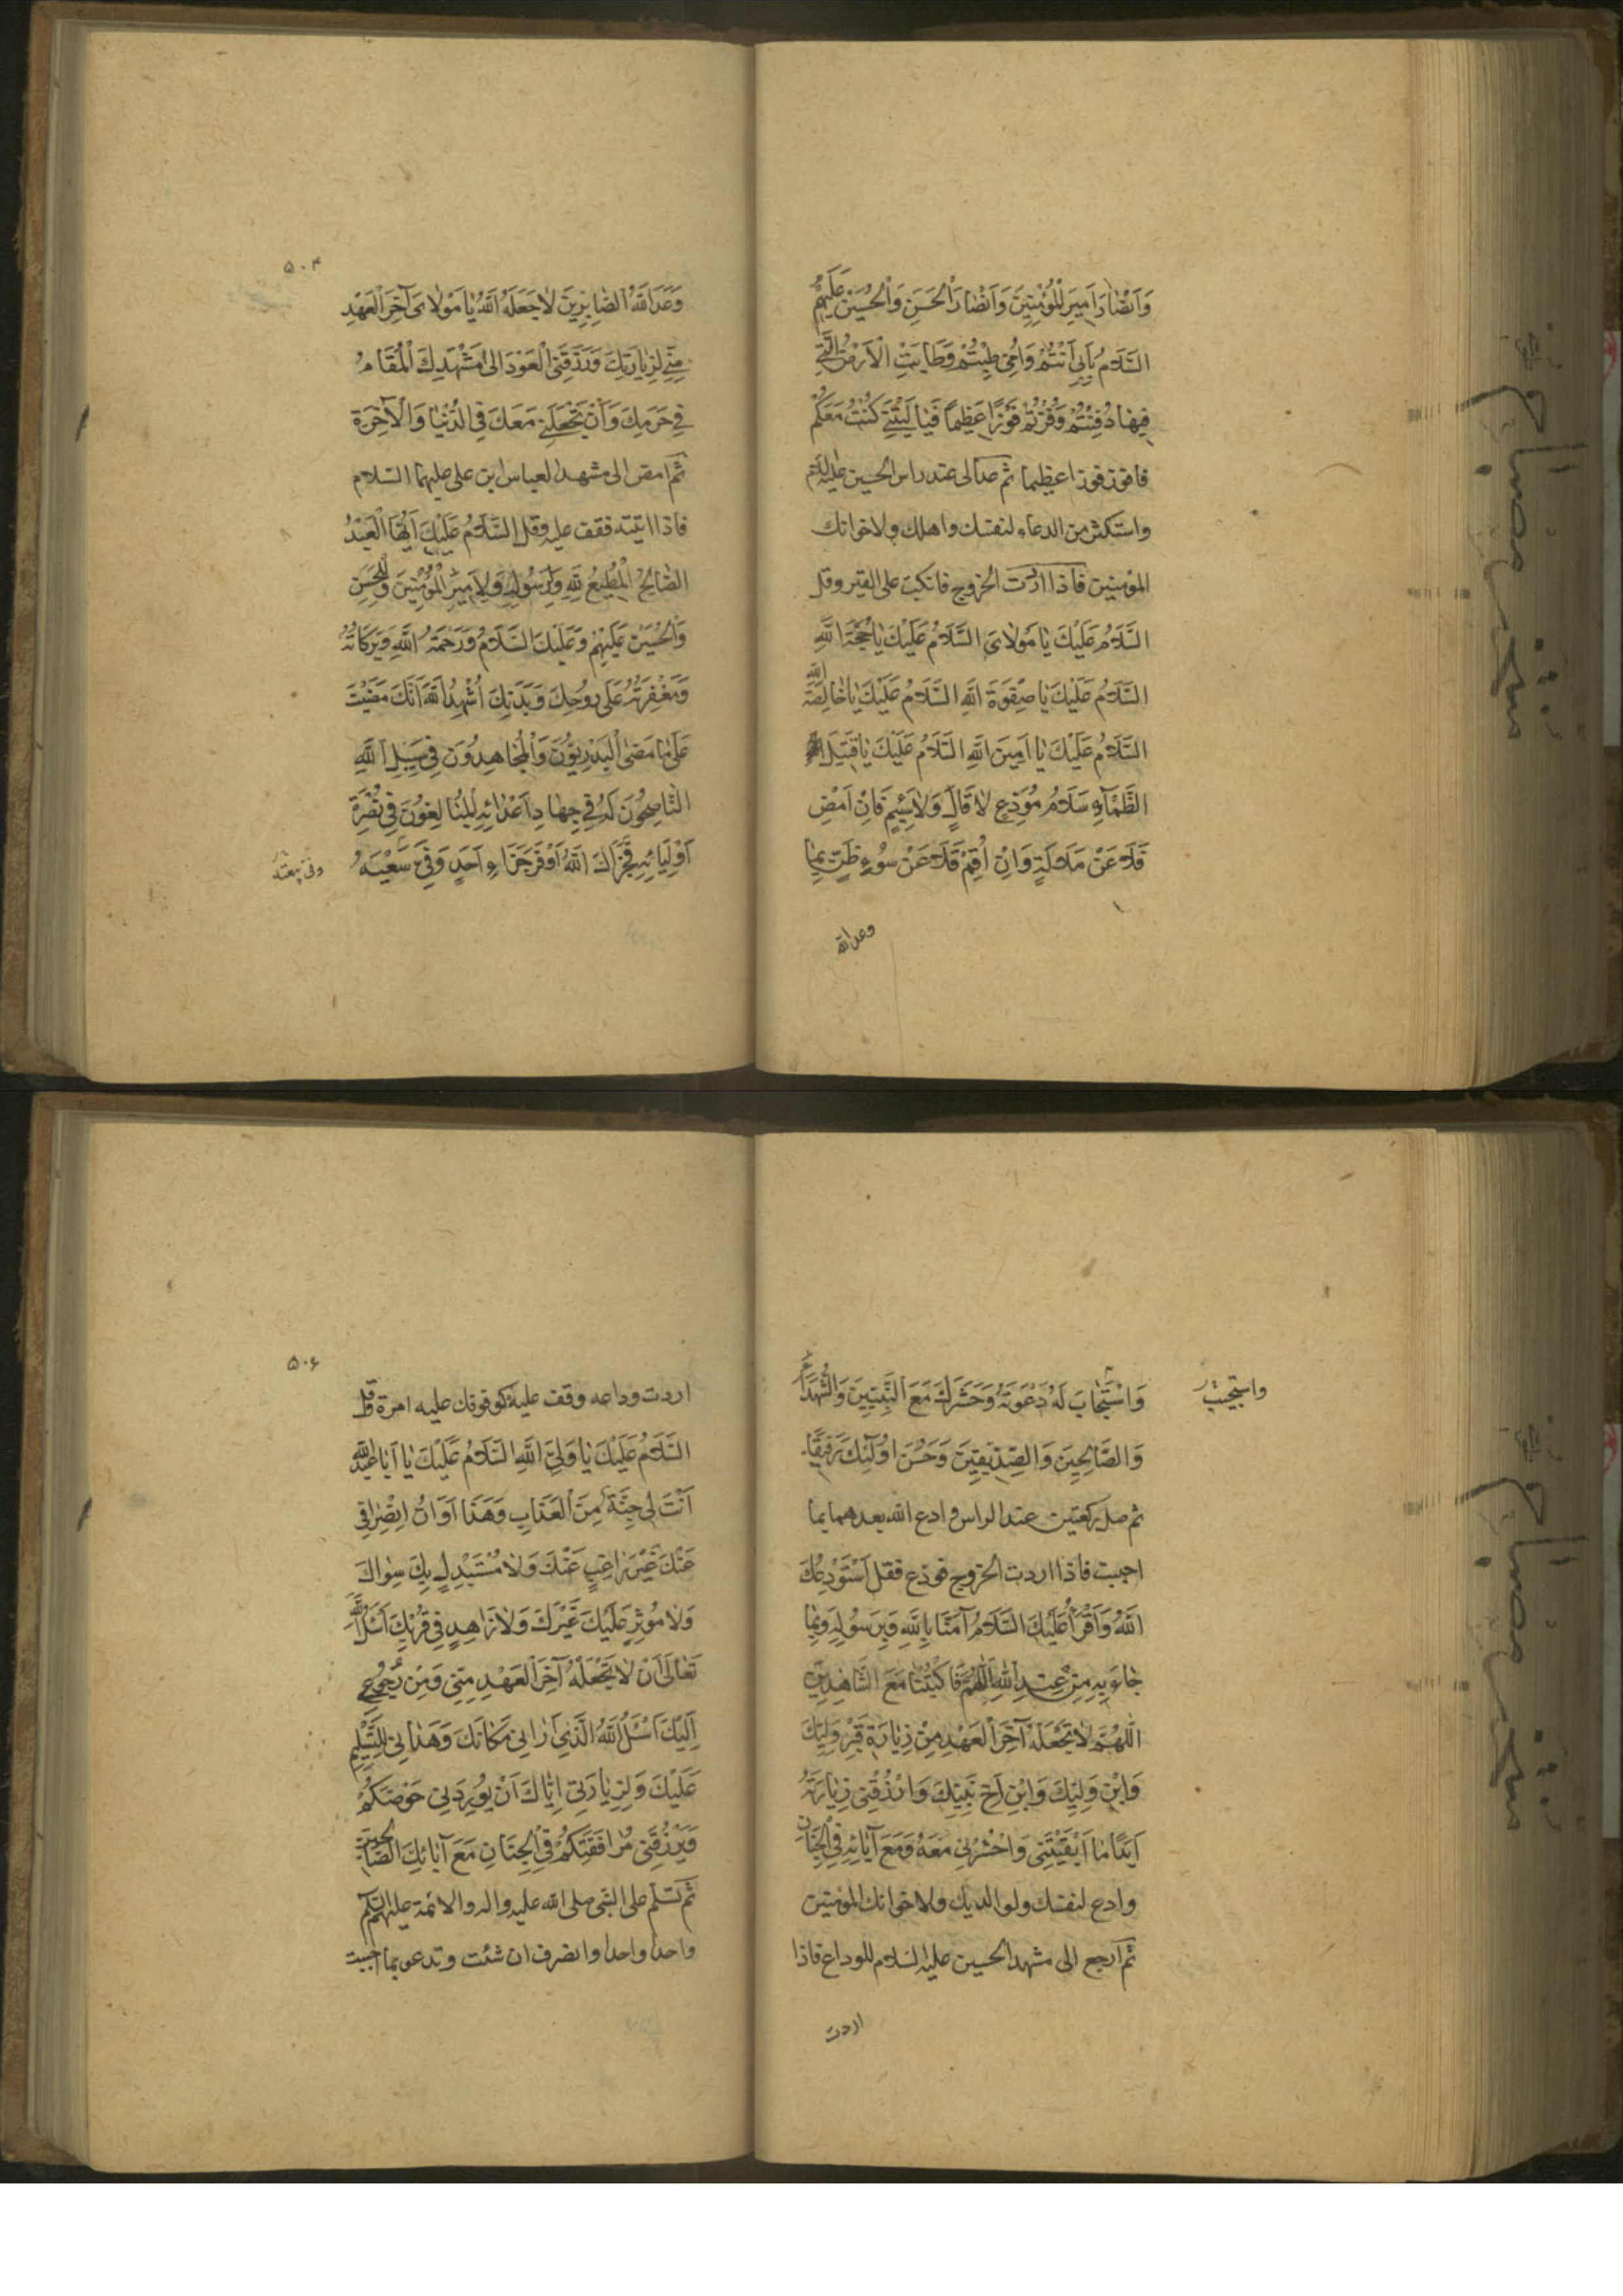 وَاَنْصٰارَ اَمِيرِ الْمُؤْمِنِينَ وَاَنْصٰارَ الْحَسَنِ وَالْحُسَيْنِ عَلَيْهِمُ
السَّلَامُ بِاَبِي اَنْتُمْ وَاُمِّي طِبْتُمْ وَطَابَتِ الْاَرْضُ الَّتِي
فِيهٰا دُفِنْتُمْ وَفُزْتُمْ فَوْزًا عَظِيمًا فَيٰا لَيْتَنِي كُنْتُ مَعَكُمْ
فافوز فوزا عظيما ثم عد الى عند راس الحسين عليه السلام
واستكثر من الدعاء لنفسك واهلك ولاخوانك
المؤمنين فاذا اردت الخروج فانكب على القبر وقل
السَّلَامُ عَلَيْكَ يٰا مَوْلٰايَ السَّلَامُ عَلَيْكَ يٰا حُجَّةَ اللّٰهِ
السَّلَامُ عَلَيْكَ يٰا صِفْوَةَ اللّٰهِ السَّلَامُ عَلَيْكَ يٰا خٰالِصَةَ اللّٰهِ
السَّلَامُ عَلَيْكَ يٰا اَمِينَ اللّٰهِ السَّلَامُ عَلَيْكَ يٰا قَتِيلَ
الظَّمٰاۤءِ سَلَامَ مُوَدِّعٍ لٰا قٰالٍ وَلٰا سَئِمٍ فَاِنْ اَمْضِ
فَلَا عَنْ مَلَالَةٍ وَاِنْ اُقِمْ فَلَا عَنْ سُوۤءِ ظَنٍّ بِمٰا
وعد الله
۵۰۴
وَعَدَ اللّٰهُ الصّٰابِرِينَ لٰا جَعَلَهُ اللّٰهُ يٰا مَوْلٰايَ آخِرَ الْعَهْدِ
مِنِّي لِزِيٰارَتِكَ وَرَزَقَنِي الْعَوْدَ اِلىٰ مَشْهَدِكَ الْمُقَامُ
فِي حَرَمِكَ وَاَنْ يَجْعَلَنِي مَعَكَ فِي الدُّنْيٰا وَالْآخِرَةِ
ثم امض الى مشهد العباس ابن على عليهما السلام
فاذا اتيته فقف عليه وقل السَّلَامُ عَلَيْكَ اَيُّهَا الْعَبْدُ
الصّٰالِحُ الْمُطِيعُ لِلّٰهِ وَلِرَسُولِهِ وَلِاَمِيرِ الْمُؤْمِنِينَ وَلِلْحَسَنِ
وَالْحُسَيْنِ عَلَيْهِمْ وَعَلَيْكَ السَّلَامُ وَرَحْمَةُ اللّٰهِ وَبَرَكَاتُهُ
وَمَغْفِرَتُهُ عَلٰى رُوحِكَ وَبَدَنِكَ اُشْهِدُ اللّٰهَ اَنَّكَ مَضَيْتَ
عَلٰى مٰا مَضَى الْبَدْرِيُّونَ وَالْمُجٰاهِدُونَ فِي سَبِيلِ اللّٰهِ
النّٰاصِحُونَ لَهُ فِي جِهٰادِ اَعْدٰائِهِ الْمُبٰالِغُونَ فِي نُصْرَةِ
اَوْلِيٰائِهِ فَجَزَاكَ اللّٰهُ اَوْفَرَ جَزَاءِ اَحَدٍ وَفٰى سَعْيَهُ
وفى ببيعته
واستجيب
وَاسْتَجٰابَ لَهُ دَعْوَتَهُ وَحَشَرَكَ مَعَ النَّبِيِّينَ وَالشُّهَدَاءِ
وَالصّٰالِحِينَ وَالصِّدِّيقِينَ وَحَسُنَ اُولٰئِكَ رَفِيقًا
ثم صل ركعتين عند الراس وادع الله بعدهما بما
احببت فاذا اردت الخروج فودع فقل اَسْتَوْدِعُكَ
اللّٰهَ وَاَقْرَأُ عَلَيْكَ السَّلَامُ آمَنَّا بِاللّٰهِ وَبِرَسُولِهِ وَبِمٰا
جٰاءَ بِهِ مِنْ عِنْدِ اللّٰهِ اَللّٰهُمَّ فَاكْتُبْنٰا مَعَ الشّٰاهِدِينَ
اَللّٰهُمَّ لٰا تَجْعَلْهُ آخِرَ الْعَهْدِ مِنْ زِيٰارَةِ قَبْرِ وَلِيِّكَ
وَابْنِ وَلِيِّكَ وَابْنِ اَخِي نَبِيِّكَ وَارْزُقْنِي زِيٰارَتَهُ
اَبَدًا مٰا اَبْقَيْتَنِي وَاحْشُرْنِي مَعَهُ وَمَعَ آبٰائِهِ فِي الْجِنَانِ
وادع لنفسك ولوالديك ولاخوانك المؤمنين
ثم ارجع الى مشهد الحسين عليه السلام للوداع فاذا
اردت
۵۰۶
اردت وداعه وقف عليه كوقوفك عليه اول مرة وقل
السَّلَامُ عَلَيْكَ يٰا وَلِيَّ اللّٰهِ السَّلَامُ عَلَيْكَ يٰا اَبٰا عَبْدِ اللّٰهِ
اَنْتَ لِي جُنَّةٌ مِنَ الْعَذَابِ وَهَذَا اَوَانُ انْصِرٰافِي
عَنْكَ غَيْرَ رٰاغِبٍ عَنْكَ وَلٰا مُسْتَبْدِلٍ بِكَ سِوٰاكَ
وَلٰا مُوثِرٍ عَلَيْكَ غَيْرَكَ وَلٰا زَاهِدٍ فِي قُرْبِكَ اَسْئَلُ اللّٰهَ
تَعٰالٰى اَنْ لٰا يَجْعَلَهُ آخِرَ الْعَهْدِ مِنِّي وَمِنْ رُجُوعِي
اِلَيْكَ اَسْئَلُ اللّٰهَ الَّذِي اَرٰانِي مَكَانَكَ وَهَدٰانِي لِلتَّسْلِيمِ
عَلَيْكَ وَلِزِيٰارَتِي اِيّٰاكَ اَنْ يُورِدَنِي حَوْضَكُمْ
وَيَرْزُقَنِي مُرٰافَقَتَكُمْ فِي الْجِنَانِ مَعَ آبٰائِكَ الصّٰالِحِينَ
ثم تسلم على النبى صلى الله عليه واله والائمة عليهم السلام
واحدا واحدا وانصرف ان شئت وتدعو بما احببت